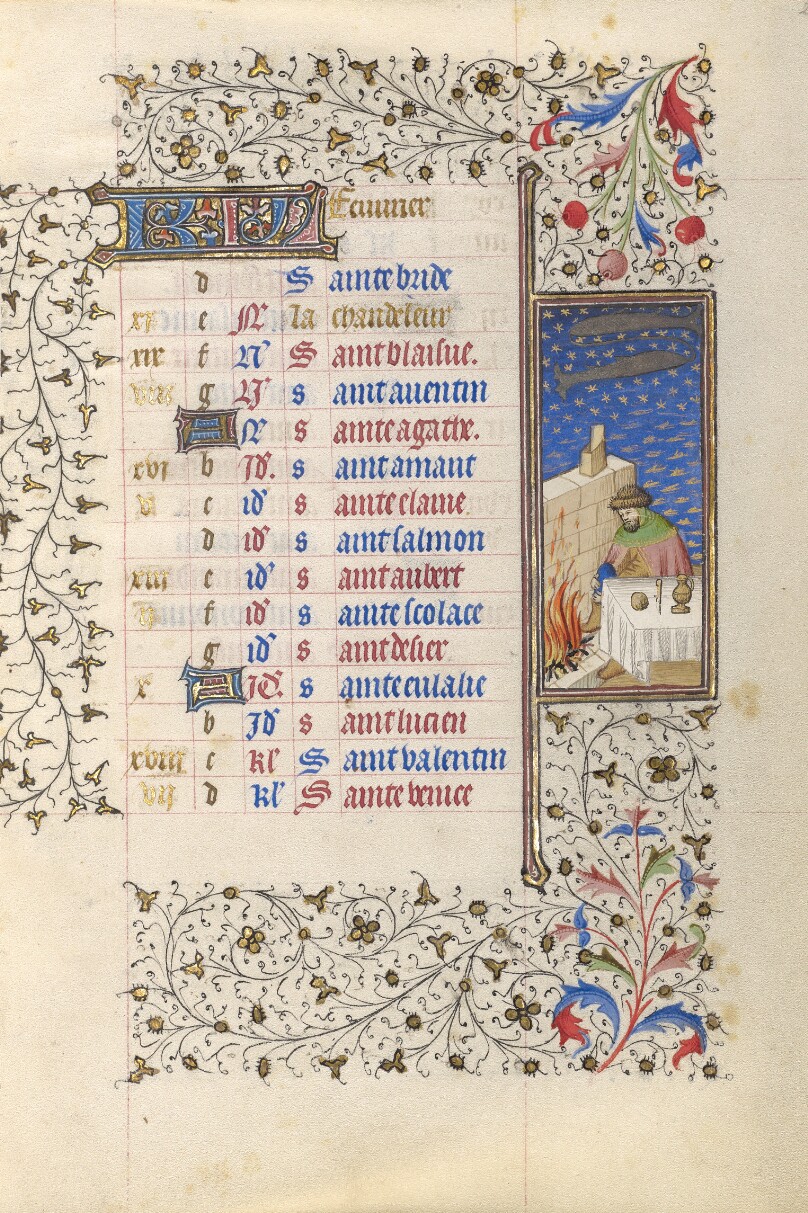 KL Feurier
d Sainte bride
xx e N la chandeleur
xix f N Saint blaisue.
viii g N saint auentin
A N s ainte agathe.
xvi b Id. saint amant
v c id sainte elaine
d id saint salmon
xiii e id saint aubert
ii f id sainte scolace
g id saint desier
x A Id. sainte eulalie
b Id saint lucien
xviii c kl Saint valentin
vii d kl Sainte venice